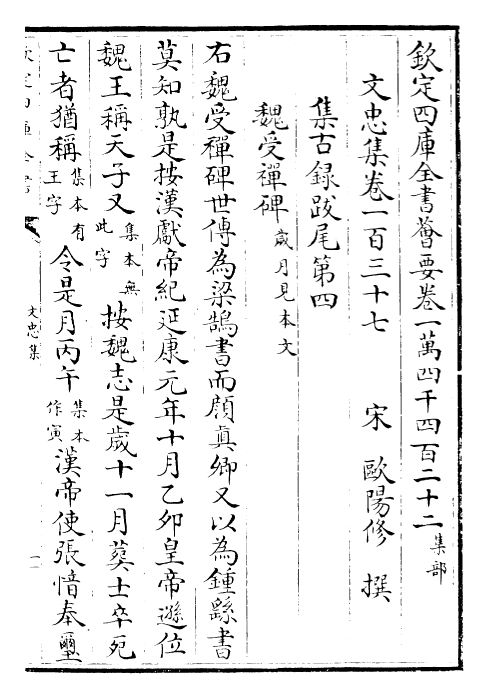 欽定四庫全書薈要卷一萬四千四百二十二 集部
文忠集卷一百三十七 宋 歐陽修 撰
集古録跋尾第四
魏受禪碑 歲月見本文
右魏受禪碑世傳為梁鵠書而顔真卿又以為鍾繇書
莫知孰是按漢獻帝紀延康元年十月乙卯皇帝遜位
魏王稱天子又 集本無此字 按魏志是歲十一月葬士卒死
亡者猶稱 集本有王字 令是月丙午 集本作寅 漢帝使張愔奉璽
文忠集
一